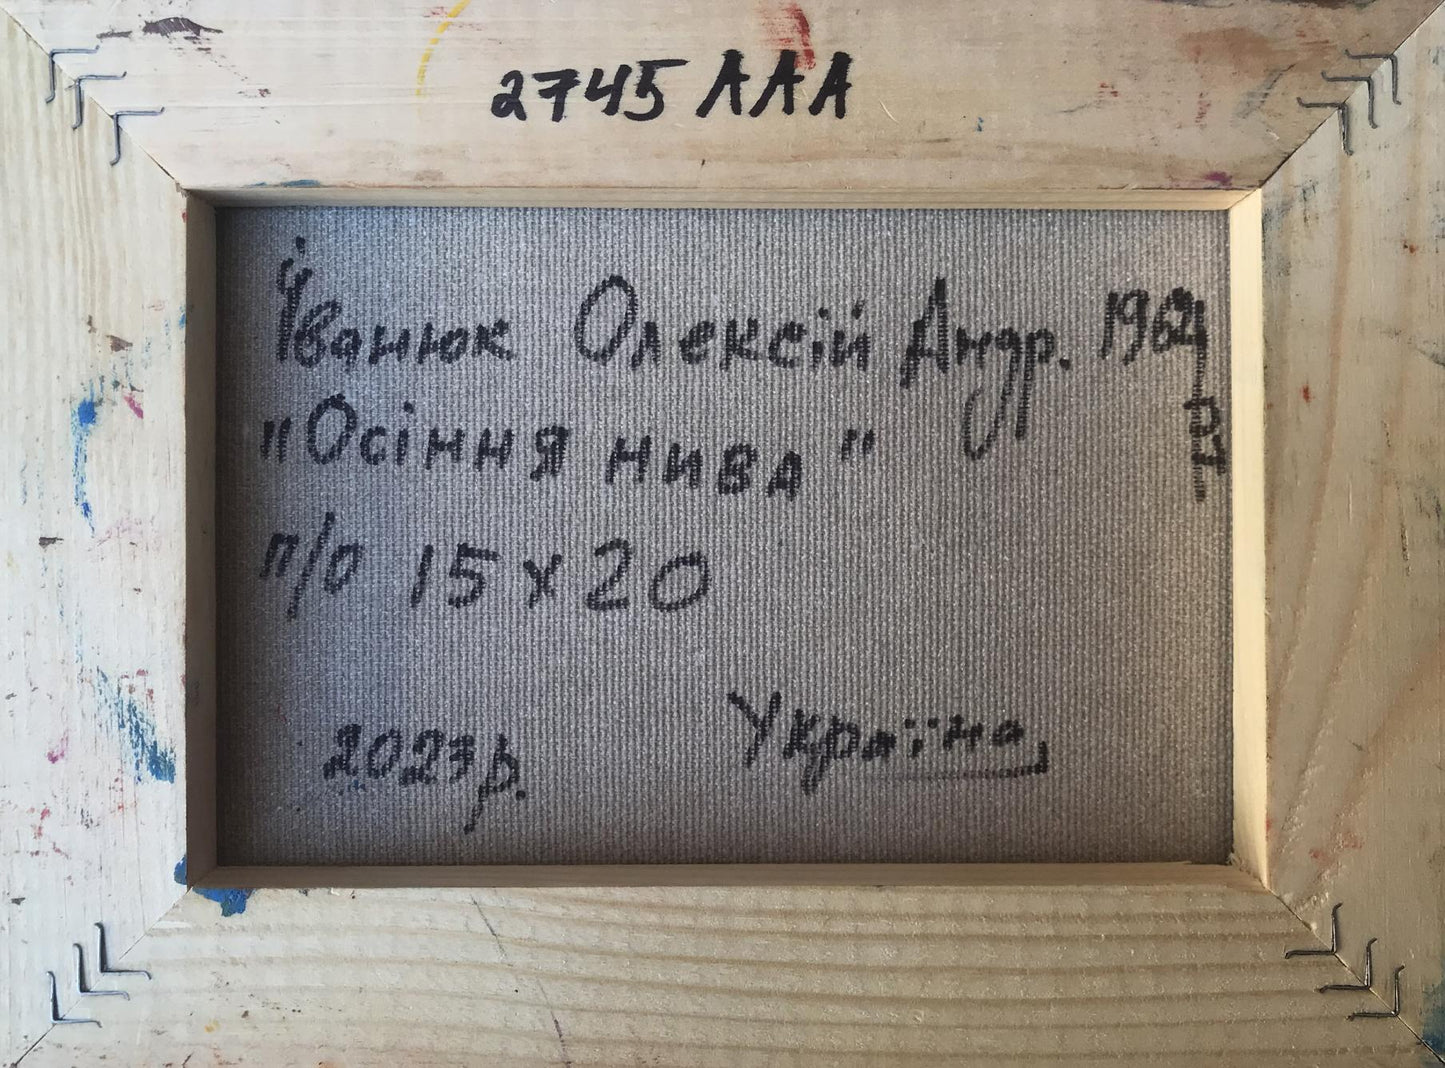 2745 ААА
Іванюк Олексій Андр. 1962 р.н
"Осіння нива"
п/о 15х20
2023р. Україна